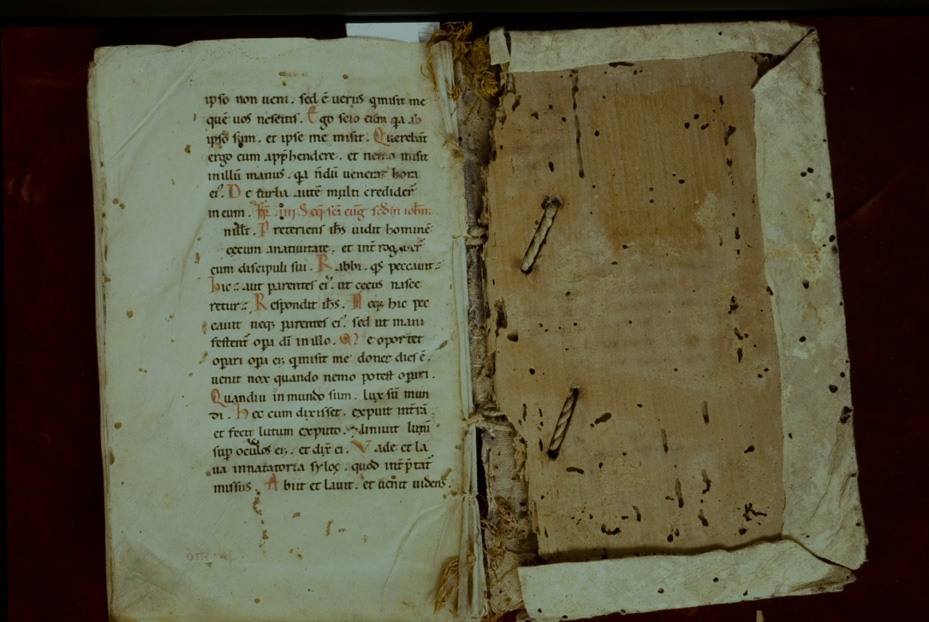 ipso non ueni . sed ē uerus q̄ misit me
quē uos nescitis . Ego scio eum q̄a ab
ipso sum . et ipse me misit . Querebāt
ergo eum app̄hendere . et nemo misit
in illū manus . q̄a n̄dū uenerat hora
ei᷒ . De turba autē multi credider̄
in eum . iiii . Seq̄ sc̄i eu͞g sc̄dm ioh̄m .
Preteriens ih̄s uidit hominē
cecum a natiuitate . et int̄rogauer̄
eum discipuli sui . Rabbi . q̄s peccauit :
hic : aut parentes ei᷒ . ut cecus nasce
retur : Respondit ih̄s . Neq; hic pec
cauit neq; parentes ei᷒ . sed ut mani
festent̄ opa dī in illo . Me oportet
opari opa ei᷒ q̄ misit me donec dies ē .
uenit nox quando nemo potest opari .
Quandiu in mundo sum . lux sū mun
di . Hec cum dixisset . expuit in t̄rā .
et fecit lutum ex sputo . liniuit lutū
sup oculos ei᷒ . et dix̄ ei . Vade et la
ua in natatoria syloe . quod int̄p̄tat̄
missus . Abiit et lauit . et uenit uidens .